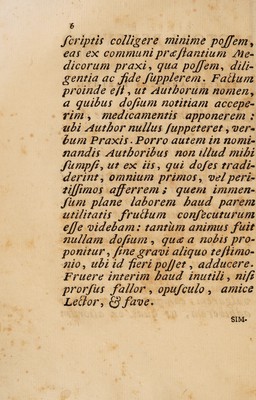 6
scriptis colligere minime possem,
eas ex communi præstantium Me-
dicorum praxi, qua possem, dili-
gentia ac fide supplerem. Factum
proinde est, ut Authorum nomen,
a quibus dosium notitiam accepe-
rim, medicamentis apponerem:
ubi Author nullus suppeteret, ver-
bum Praxis. Porro autem in nomi-
nandis Authoribus non illud mihi
sumpsi, ut ex iis, qui doses tradi-
derint, omnium primos, vel peri-
tissimos afferrem; quem immen-
sum plane laborem haud parem
utilitatis fructum consecuturum
esse videbam: tantùm animus fuit
nullam dosium, quæ a nobis pro-
ponitur, sine gravi aliquo testimo-
nio, ubi id fieri posset, adducere.
Fruere interim haud inutili, nisi
prorsus fallor, opusculo, amice
Lector, & fave.
SIM-